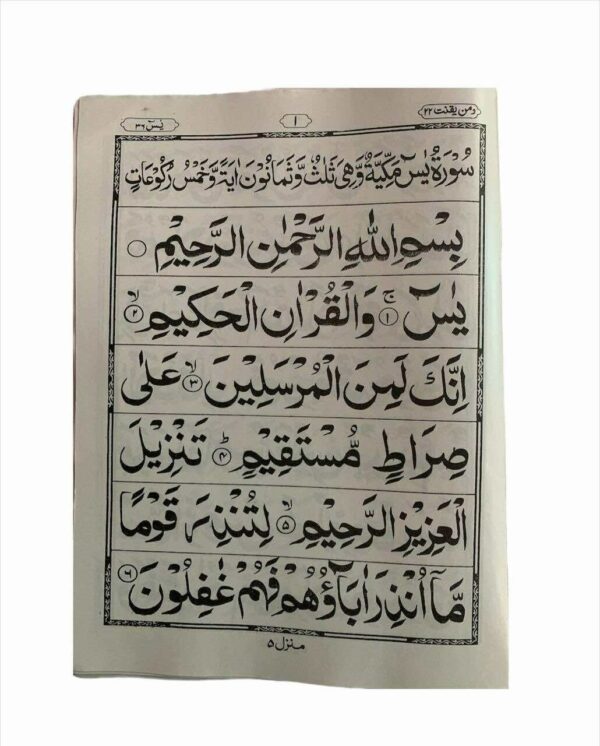 ومن یقنت ۲۲
۱
یٰسٓ ۳۶
سُوْرَةُ یٰسٓ مَكِّیَّةٌ وَّهِیَ ثَلٰثٌ وَّ ثَمَانُوْنَ اٰیَةً وَّخَمْسُ رُكُوْعَاتٍ
بِسْمِ اللّٰهِ الرَّحْمٰنِ الرَّحِیْمِ ۝
یٰسٓ ۚ‏﴿۱﴾ وَالْقُرْاٰنِ الْحَكِیْمِ ۙ‏﴿۲﴾
اِنَّكَ لَمِنَ الْمُرْسَلِیْنَ ۙ‏﴿۳﴾ عَلٰی
صِرَاطٍ مُّسْتَقِیْمٍ ؕ‏﴿۴﴾ تَنْزِیْلَ
الْعَزِیْزِ الرَّحِیْمِ ۙ‏﴿۵﴾ لِتُنْذِرَ قَوْمًا
مَّاۤ اُنْذِرَ اٰبَآؤُهُمْ فَهُمْ غٰفِلُوْنَ ﴿۶﴾
منزل ۵